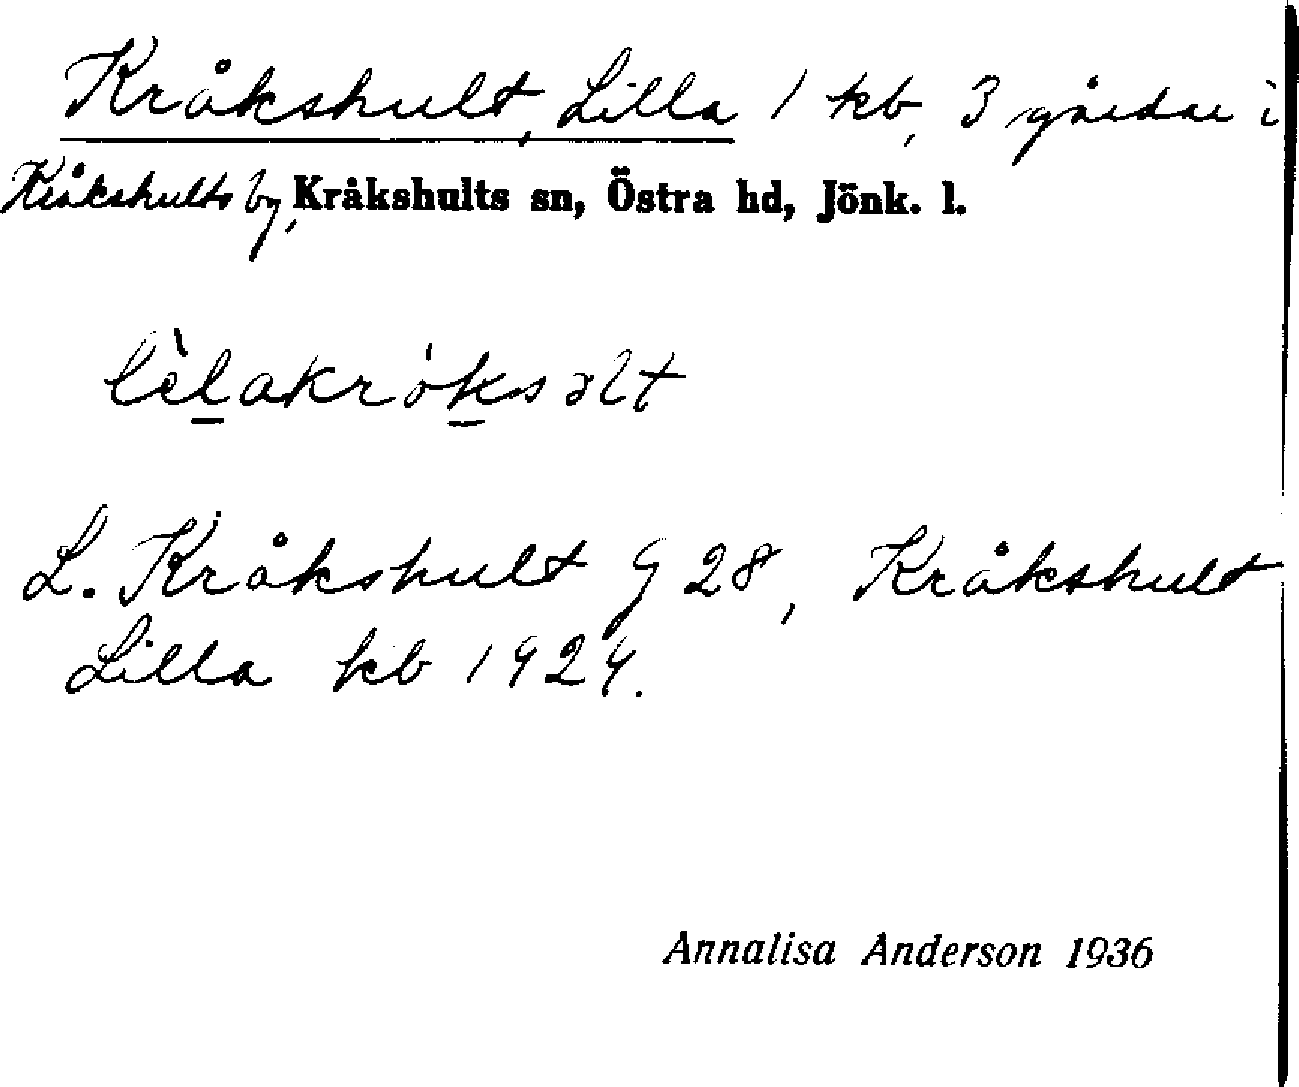 Kråkshult, Lilla 1 kb, 3 gårdar i
Kråkshults by, Kråkshults sn, Östra hd, Jönk. l.
lèlakróksalt
L. Kråkshult G 28, Kråkshult
Lilla kb 1924.
Annalisa Anderson 1936